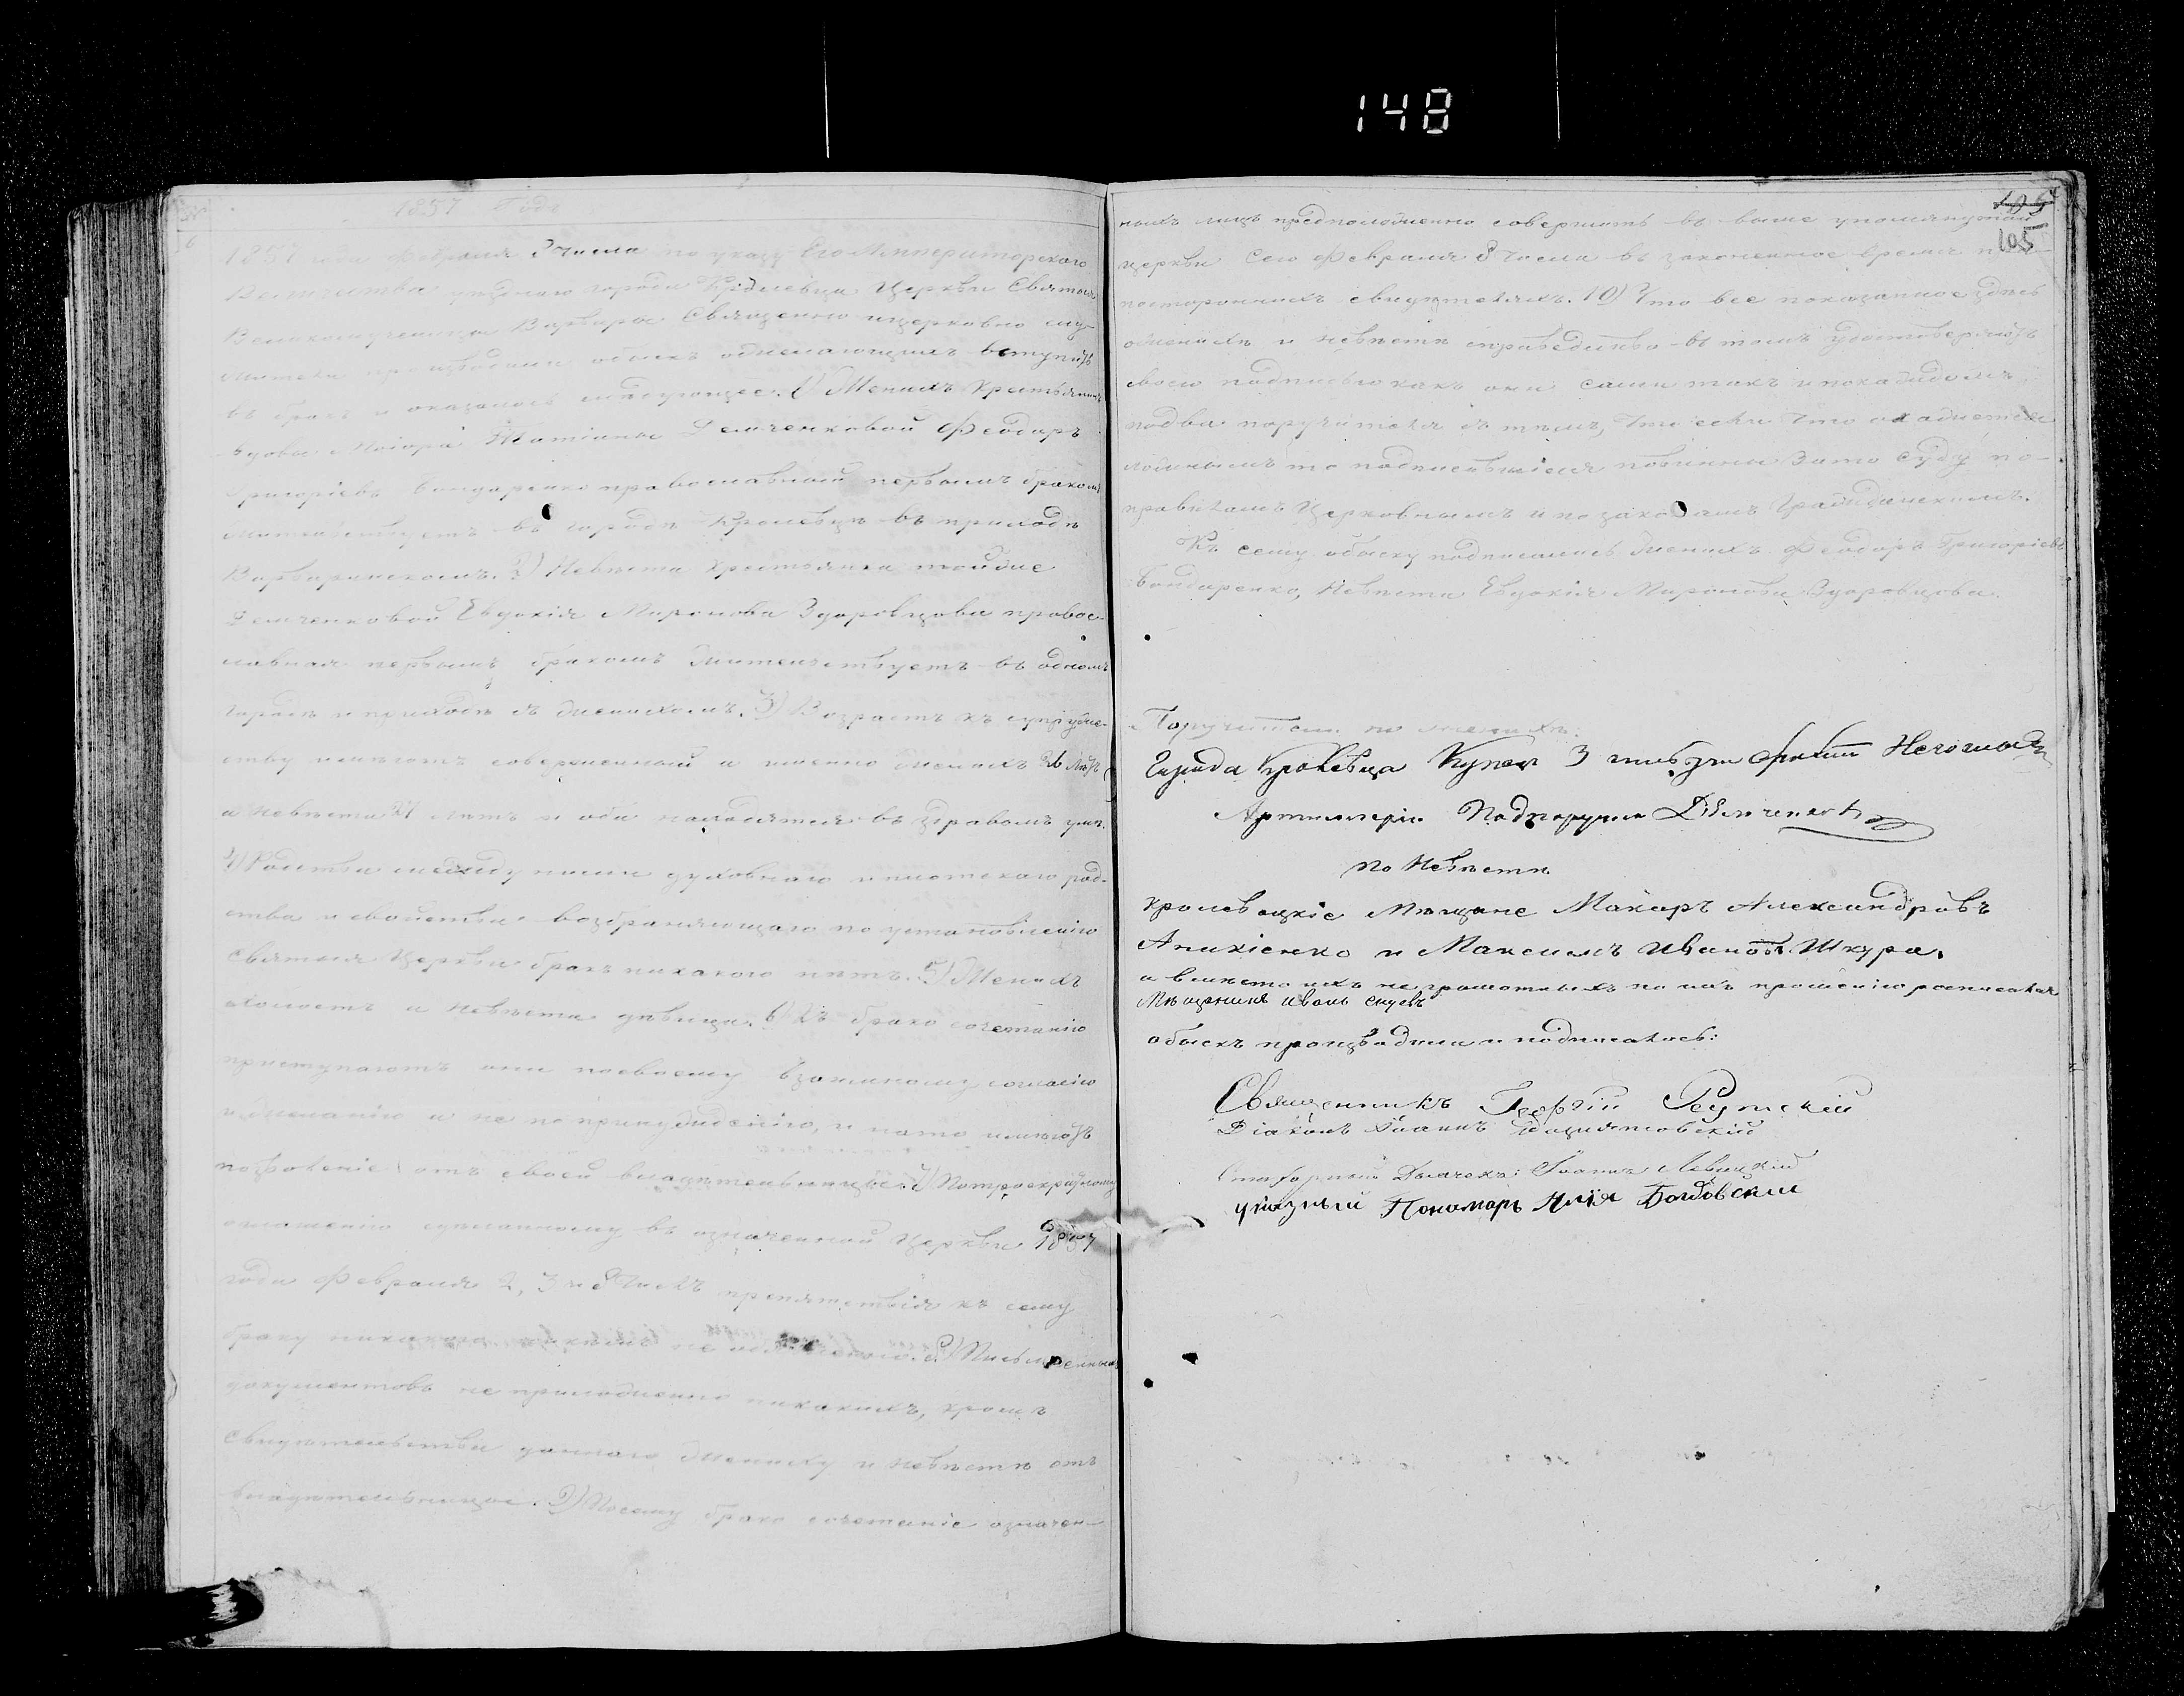 148
1857 Годъ
6
1857 года Февраля 8 числа по указу Его Императорскаго
Величества уезднаго города Кролевца Церкви Святыя
Великомученицы Варвары Священно и церковно слу-
жители производили обыскъ о желающихъ вступить
въ бракъ и оказалось следующее. 1) Женихъ Крестьянинъ
вдовы Маіора Татіаны Демченковой Феодоръ
Григоріевъ Бондаренко православный первымъ бракомъ
жительствуетъ въ городѣ Кролевцѣ въ приходѣ
Варваринскомъ. 2) Невѣста крестьянка тойже
Демченковой Евдокія Миронова Здоровцова правос-
лавная первымъ бракомъ жительствуетъ въ одномъ
городѣ и приходѣ съ женихомъ. 3) Возрастъ къ супруже-
ству имѣютъ совершенный и именно женихъ лѣтъ
а невѣста 21 лѣтъ и оба находятся въ здравомъ умѣ.
4) Родства между ними духовнаго и плотскаго род-
ства и свойства возбраняющаго по установленію
Святыя Церкви бракъ никакого нѣтъ. 5) Женихъ
холостъ а невѣста дѣвица. 6) Къ брако сочетанію
приступаютъ они посвоему взаимному согласію
и желанію и не по принужденію, и нато имѣютъ
позволеніе отъ своей владѣтельницы. 7) Потроекратному
оглашенію сделанному въ означенной Церкви 1857
года Февраля 2, 3 и 8 числъ препятствія къ сему
браку никакого никѣмъ не объявлено. 8) Письменныхъ
документовъ не приложенно никакихъ, кромѣ
свидѣтельства даннаго жениху и невѣстѣ отъ
владѣтельницы. 9) Посему брако сочетаніе означен-
105
ныхъ лицъ предположенно совершить въ выше упомянутой
церкви сего Февраля 8 числа въ законенное время при
постороннихъ свидѣтеляхъ. 10) Что все показанное здѣсь
о женихѣ и невѣстѣ справедливо въ томъ удостовѣряютъ
своею подписью какъ они сами такъ и по каждомъ
подва поручителя съ тѣмъ, что если что окажется
ложнымъ то подписавшіеся повинны зато суду по
правиламъ Церковнымъ и по законамъ Гражданскимъ.
Къ сему обыску подписались женихъ Феодоръ Григоріевъ
Бондаренко, Невѣста Евдокія Миронова Здоровцова.
Поручители по женихѣ:
Города Кролевца Купец 3 гильдии
Артиллеріи Подпоручик Демченко
по Невѣстѣ
Кролевецкіе Мѣщане Макаръ Александровъ
Аникіенко и Максимъ Ивановъ Шкура.
а вмѣсто ихъ не грамотныхъ по ихъ прошенію росписался
Мѣщанинъ Иванъ
обыскъ производили и подписались:
Священникъ Георгій
Діаконъ Іоаннъ
Дьячекъ: Іоаннъ Левицкій
указный Пономарь Илія